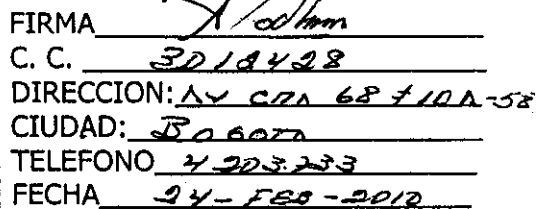 FIRMA
C. C. 3012428
DIRECCION: AV CRA 68 # 10A-58
CIUDAD: BOGOTA
TELEFONO 4203233
FECHA 24-FEB-2010